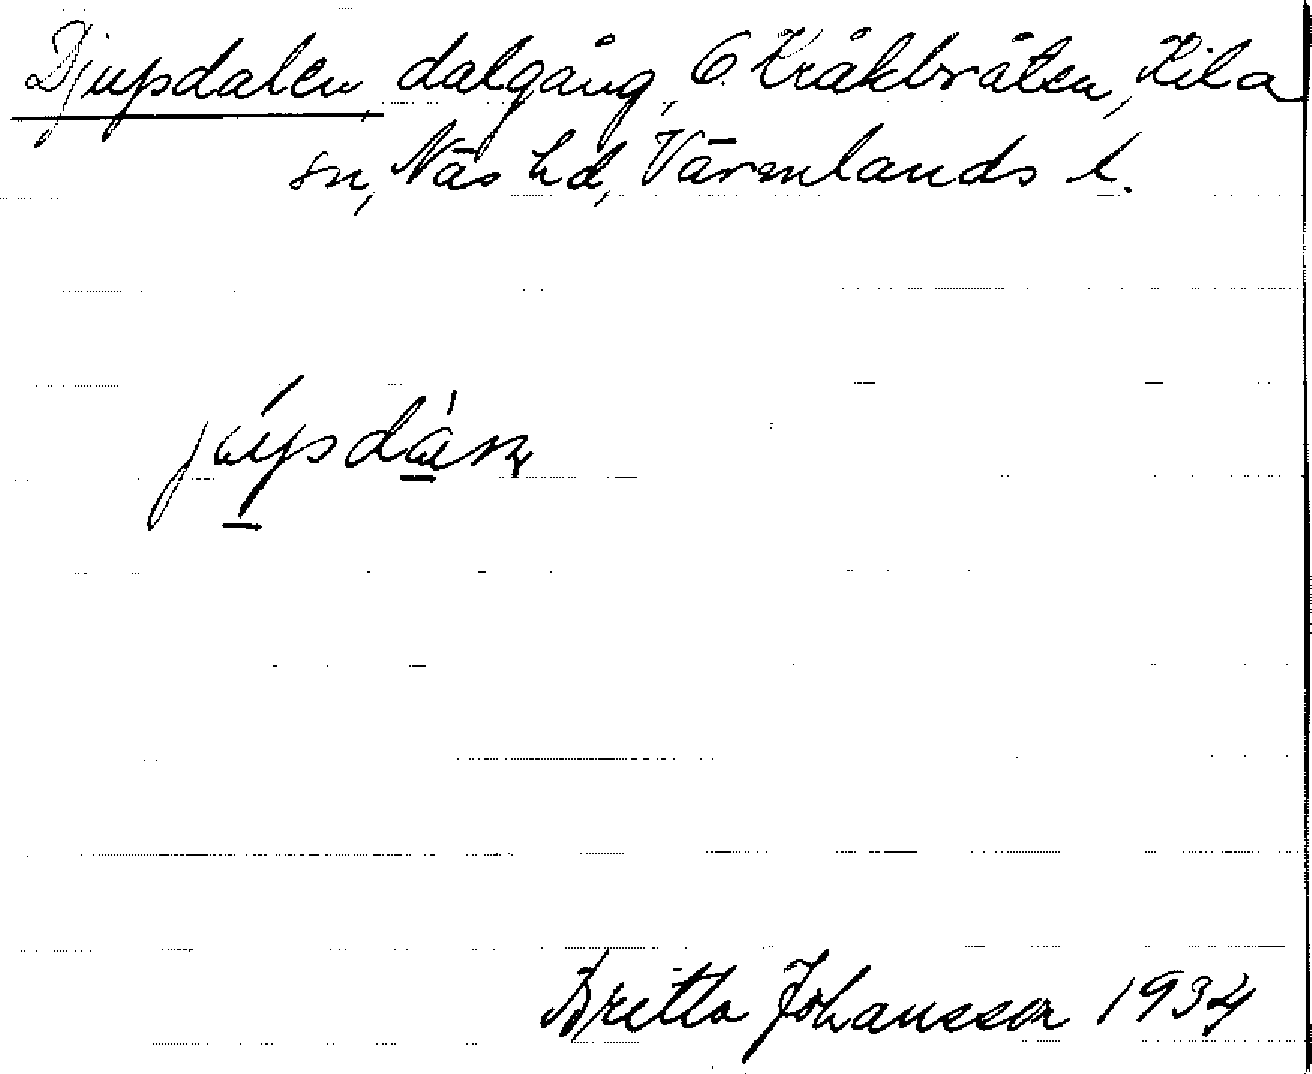 Djupsdalen, dalgång, Ö. Kråkbråten, Kila
sn, Näs hd, Värmlands l.
Britta Johansson 1934